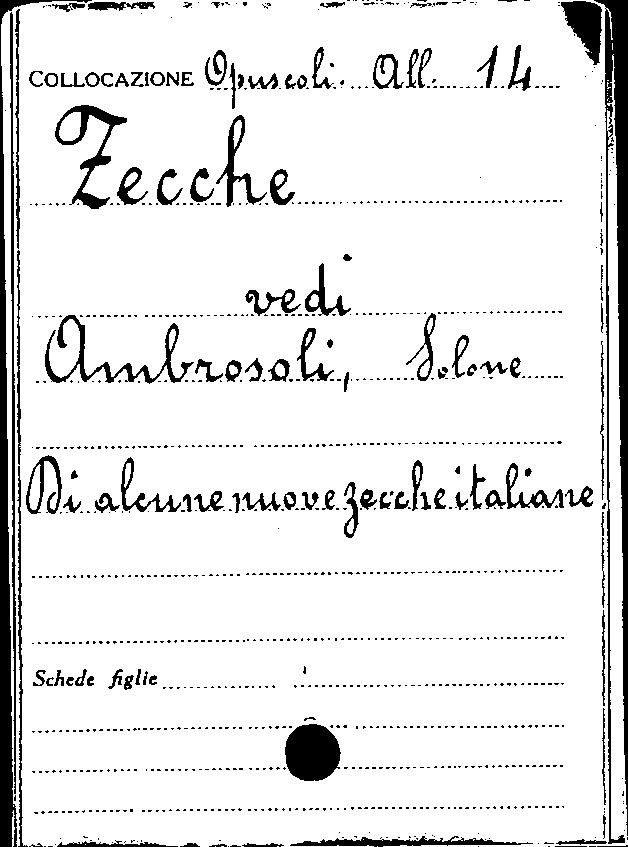 COLLOCAZIONE Opuscoli. All. 14
Zecche
vedi
Ambrosoli, Solone
Di alcune nuove zecche italiane
Schede figlie